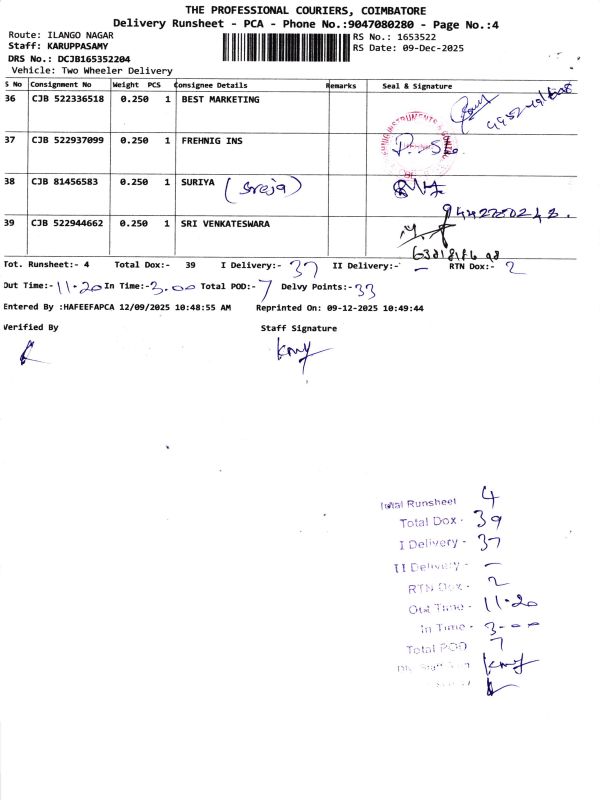 THE PROFESSIONAL COURIERS, COIMBATORE
Delivery Runsheet - PCA - Phone No.:9047080280 - Page No.:4
Route: ILANGO NAGAR
RS No.: 1653522
Staff: KARUPPASAMY
RS Date: 09-Dec-2025
DRS No.: DCJB165352204
Vehicle: Two Wheeler Delivery
S No Consignment No Weight PCS Consignee Details Remarks Seal & Signature
36 CJB 522336518 0.250 1 BEST MARKETING
37 CJB 522937099 0.250 1 FREHNIG INS
38 CJB 81456583 0.250 1 SURIYA (Sroja)
39 CJB 522944662 0.250 1 SRI VENKATESWARA
Tot. Runsheet:- 4 Total Dox:- 39 I Delivery:- 37 II Delivery:- - RTN Dox:- 2
Out Time:- 11.20 In Time:- 3.00 Total POD:- 7 Delvy Points:- 33
Entered By :HAFEEFAPCA 12/09/2025 10:48:55 AM Reprinted On: 09-12-2025 10:49:44
Verified By Staff Signature
Total Runsheet 4
Total Dox - 39
I Delivery - 37
II Delivery - -
RTN Dox - 2
Out Time - 11.20
In Time - 3.00
Total POD 7